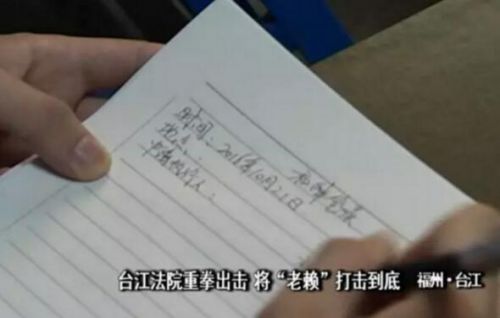 时间：2016年10月21日
地点：
申请执行人：
台江法院重拳出击 将“老赖”打击到底 福州·台江